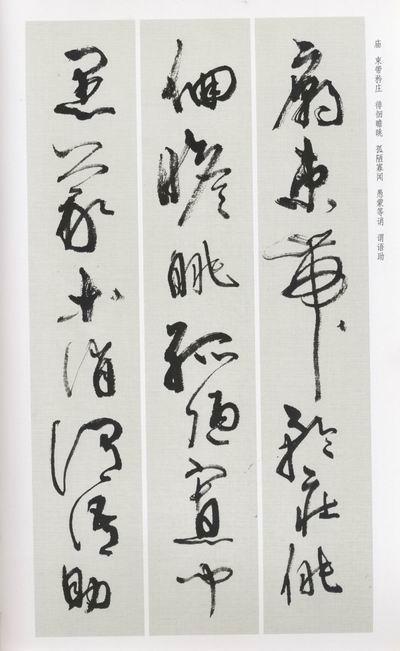 庙 束带矜庄 徘徊瞻眺 孤陋寡闻 愚蒙等诮 谓语助
廟束帶矜莊俳
佪瞻眺孤陋寡聞
愚蒙等誚謂語助